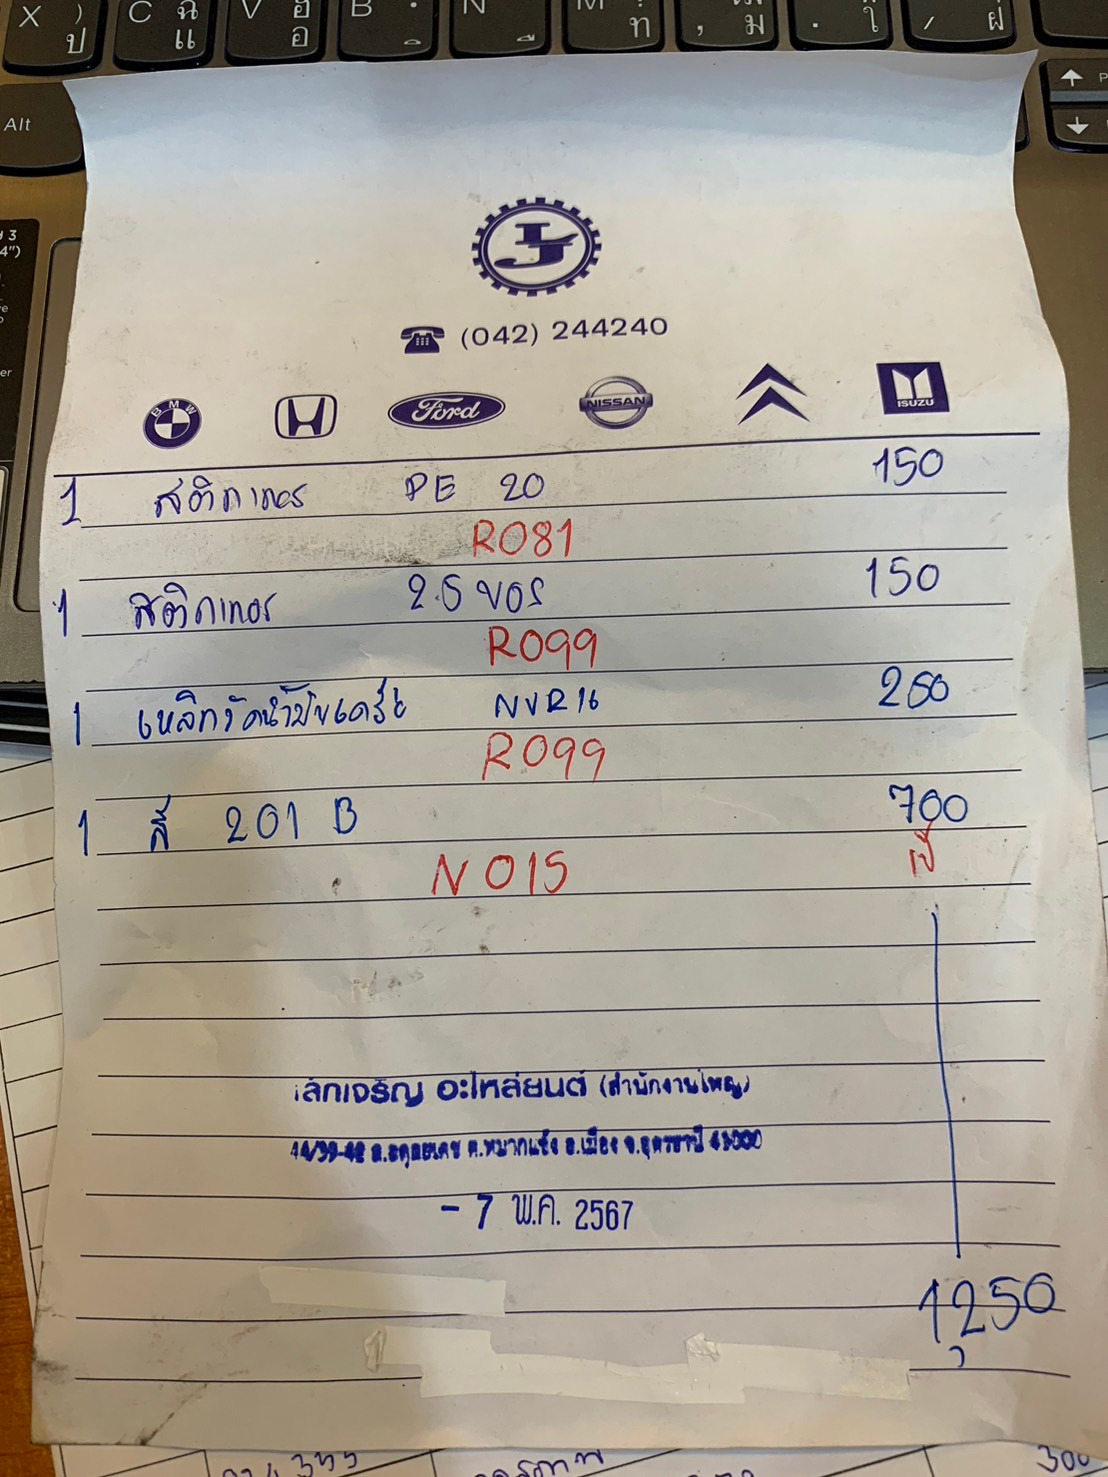 X ) ป
C ฉ แ
V ฮ อ
B ฺ ิ
N ์ ื
M ? ท
, ฒ ม
. ฬ ใ
/ ฦ ฝ
Alt
(042) 244240
BMW
Ford
NISSAN
ISUZU
1 สติกเกอร์ PE 20 150
R081
1 สติกเกอร์ 2.5 ของ 150
R099
1 เหล็กวัดน้ำมันเครื่อง NVR16 250
R099
1 สี 201 B 700
N 015
เป้
เล้กเจริญ อะไหล่ยนต์ (สำนักงานใหญ่)
44/39-42 ถ.อดุลยเดช ต.หมากแข้ง อ.เมือง จ.อุดรธานี 41000
- 7 พ.ค. 2567
1,250
300